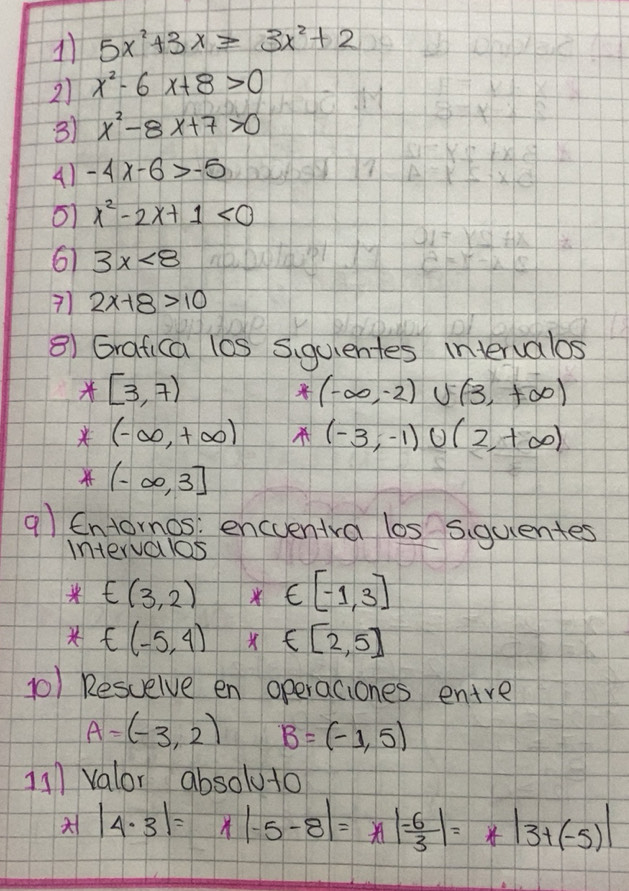 1) 5x²+3x ≥ 3x²+2
2) x²-6x+8>0
3) x²-8x+7>0
4) -4x-6>-5
5) x²-2x+1<0
6) 3x<8
7) 2x+8>10
8) Grafica los siguientes intervalos
* [3,7) * (-∞,-2) ∪ (3, +∞)
* (-∞,+∞) * (-3,-1) ∪ (2,+∞)
* (-∞,3]
9) Entornos: encuentra los siguientes
intervalos
* E(3,2) * E[-1,3]
* E(-5,4) * E[2,5]
10) Resuelve en operaciones entre
A=(-3,2) B=(-1,5)
11) Valor absoluto
* |4·3|= * |-5-8|= * |-6/3|= * |3+(-5)|